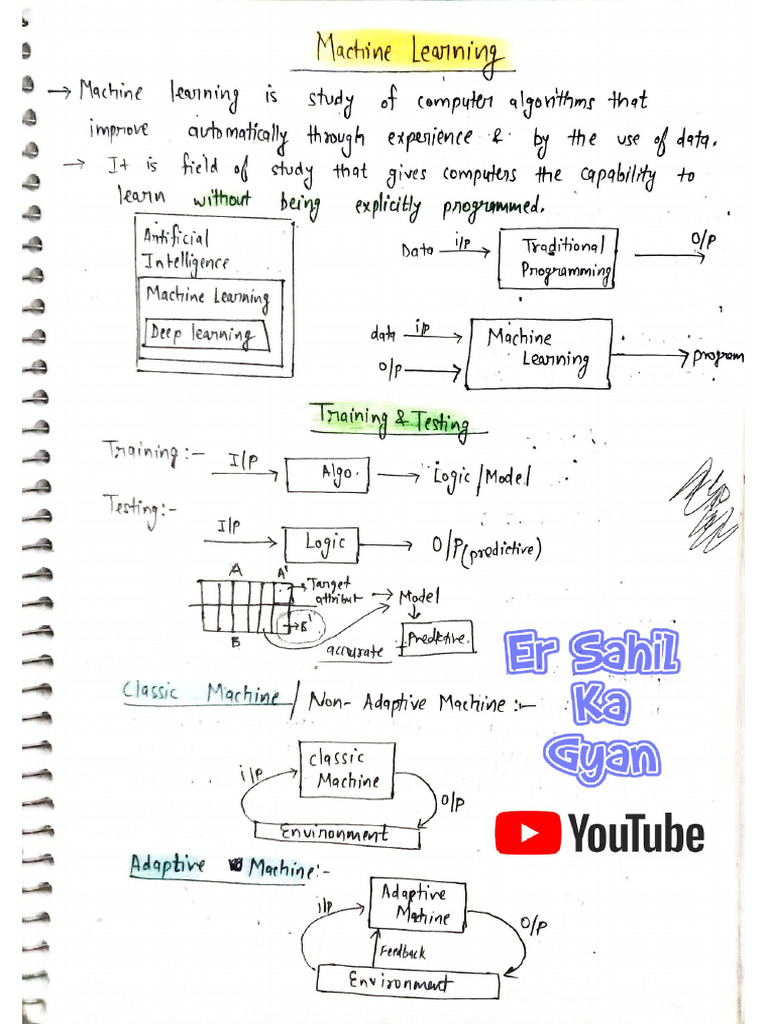 Machine Learning
→ Machine learning is study of computer algorithms that
improve automatically through experience & by the use of data.
→ It is field of study that gives computers the capability to
learn without being explicitly programmed.
Artificial
Intelligence
Machine Learning
Deep learning
Data i/p Traditional
Programming O/P
data i/p Machine
O/P Learning program
Training & Testing
Training :- I/P Algo. Logic/Model
Testing :-
I/P Logic O/P (predictive)
A A' Target
attribut Model
B B' accurate Predictive
Classic Machine / Non-Adaptive Machine :-
i/p Classic
Machine O/P
Environment
Adaptive Machine:-
i/p Adaptive
Machine O/P
Feedback
Environment
Er Sahil
Ka
Gyan
YouTube